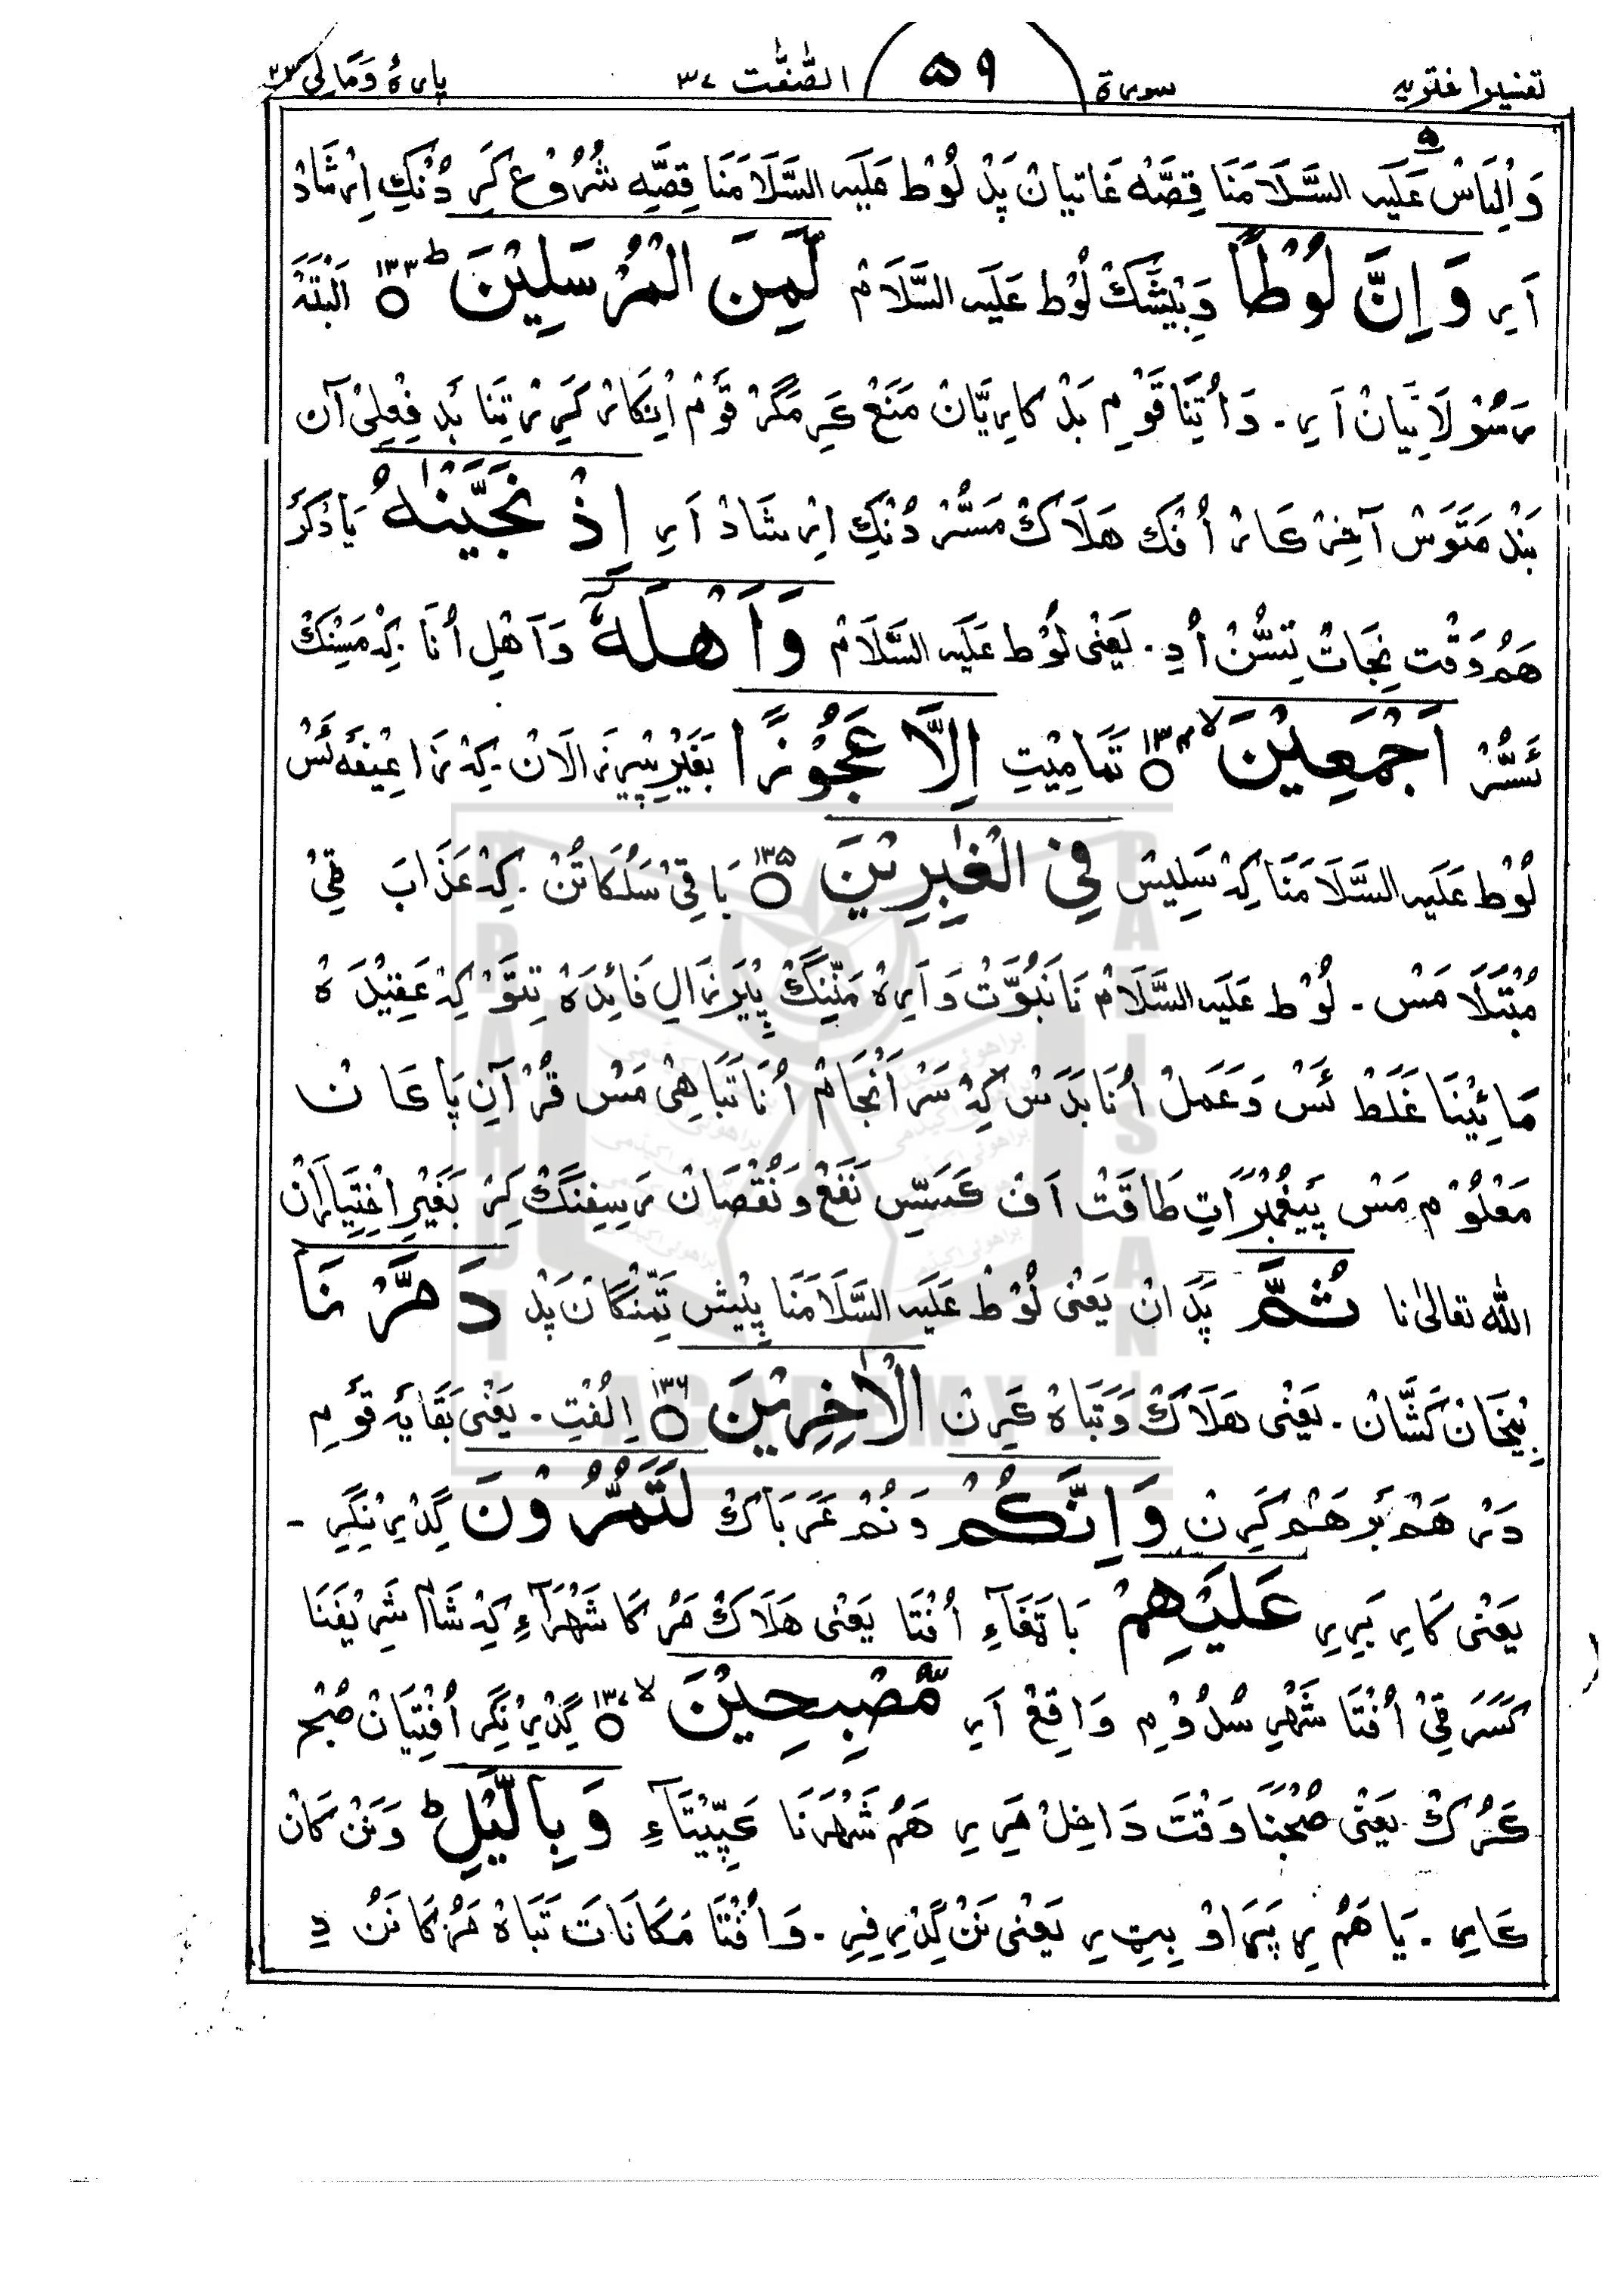 تفسیر اختریه سورة ( ۵۹ ) الصّٰفّٰت ۳۷ پارهٔ وَمَا لِیَ ۲۳
وَاِلیَاسْ عَلَیہ السَّلَامَنَا قِصَّہْ غَاتیانْ پَدْ لُوْط عَلَیہ السَّلَامَنَا قِصَّہِ شُرُوْع کَرِ دُنْکِ اِرْشَادْ
اَرِ وَاِنَّ لُوْطًا وَبَیْشَکْ لُوْط عَلَیہ السَّلَامْ لَّمِنَ الْمُرْسَلِیْنَ ط ۱۳۳ اَلْبَتَّہْ
رَسُوْلَاتَیَانْ اَرِ۔ وَاُتِنَا قَوْمِ بَدْ کارِیَّانْ مَنَعْ کَرِ مَگَرْ قَوْمْ اِنْکَارْ کَرِیْ تِنَا بَدِ فِعْلِیْ آن
بَنْدْ مَتَوَسْ آخِرْ کَارْ اُفْکْ هَلَاکْ مَسُّرْ دُنْکِ اِرْشَادْ اَرِ اِذْ نَجَّیْنٰہُ یَادْکَرْ
هَمُ وَقْت نِجَاتْ تِسُّنْ اُدِ۔ یَعْنٰی لُوْط عَلَیہ السَّلَامْ وَاَهْلَہٗۤ وَآهْلِ اُنَا کِدْ مَسِنْکْ
ئَسُّرْ اَجْمَعِیْنَ لا ۱۳۴ تَمَامِیْتِ اِلَّا عَجُوْزًا بَغَیْرِ پِیْرِزَالَانْ۔ کِدْ زَاعِیْفَہ ئَسْ
لُوْط عَلَیہ السَّلَامَنَا کِدْ سَلِیْسْ فِی الْغٰبِرِیْنَ ۱۳۵ بَاقِیْ سَلُکَاتُنْ۔ کِدْ عَذَابَ ٹِیْ
مُبْتَلَا مَسْ۔ لُوْط عَلَیہ السَّلَامْ نَا نَبُوَّتْ وَ اَرِہْ مَنِّنْگْ پِیْرِزَالِ فَائِدَہ تِتَوْ کِدْ عَقِیْدَہ
مَائِیْنَا غَلَطْ ئَسْ وَعَمَلْ اُنَا بَدَسْ کِدْ سَرْ اَنْجَامْ اُنَا تَبَاهِیْ مَسْ قُرْآنِ پَاکَانْ
مَعْلُوْم مَسْ پَیْغُمْبَرَاتِ طَاقَتْ اَفْ کَسَسِّ نَفَعْ وَنُقْصَانْ رَسِفِنْگْ کِرْ بَغَیْرِ اِخْتِیَارَانْ
اللّٰہ تعالیٰ نا ثُمَّ پَدَانْ یَعْنٰی لُوْط عَلَیہ السَّلَامَنَا پِیْش تَمِّنْگَانْ پَدْ دَمَّرْنَا
بِیْخَانْ کَشَّانْ۔ یَعْنٰی هَلَاکْ وَتَبَاہْ کَرِنْ الْاٰخَرِیْنَ ۱۳۶ اِلُفْتِ۔ یَعْنٰی بَقَایَہ قَوْمِ
دَرْ هَمْ بَرْ هَمْ کَرِنْ وَاِنَّکُمْ وَ نُمْ عَرَبَاکْ لَتَمُرُّوْنَ گِدْرِیْنِگِرِ۔
یَعْنٰی کَارِ بَرِیرِ عَلَیْهِمْ بَاتَغَاءِ اُفْتَا یَعْنٰی هَلَاکْ مَرُکَا شَهْرَآءِ کِدْ شَاا شَرِیْفَنَا
کَسَرَ ٹِیْ اُفْتَا شَهْرِ سُدُوْم وَاقِعْ اَرِ مُّصْبِحِیْنَ لا ۱۳۷ گِدْرِیْنِگِرِ اُفْتِیَانْ صُبْح
کَرُکْ یَعْنٰی صُبْحَنَا وَقْتَ دَاخِلْ مَرِرِ هَمُ شَهْرَنَا عَپِّیْتَاءِ وَبِالَّیْلِ ط وَنَنْ کَانْ
کَارِرِ۔ یَا هَمْ رِ پِیَرَاوْ بِیْتِرِ یَعْنٰی نَنْ گِدْرِفِرِ۔ وَاُفْتَا مَکَانَاتَ تَبَاہْ مَرُکَا نَنُ دِ